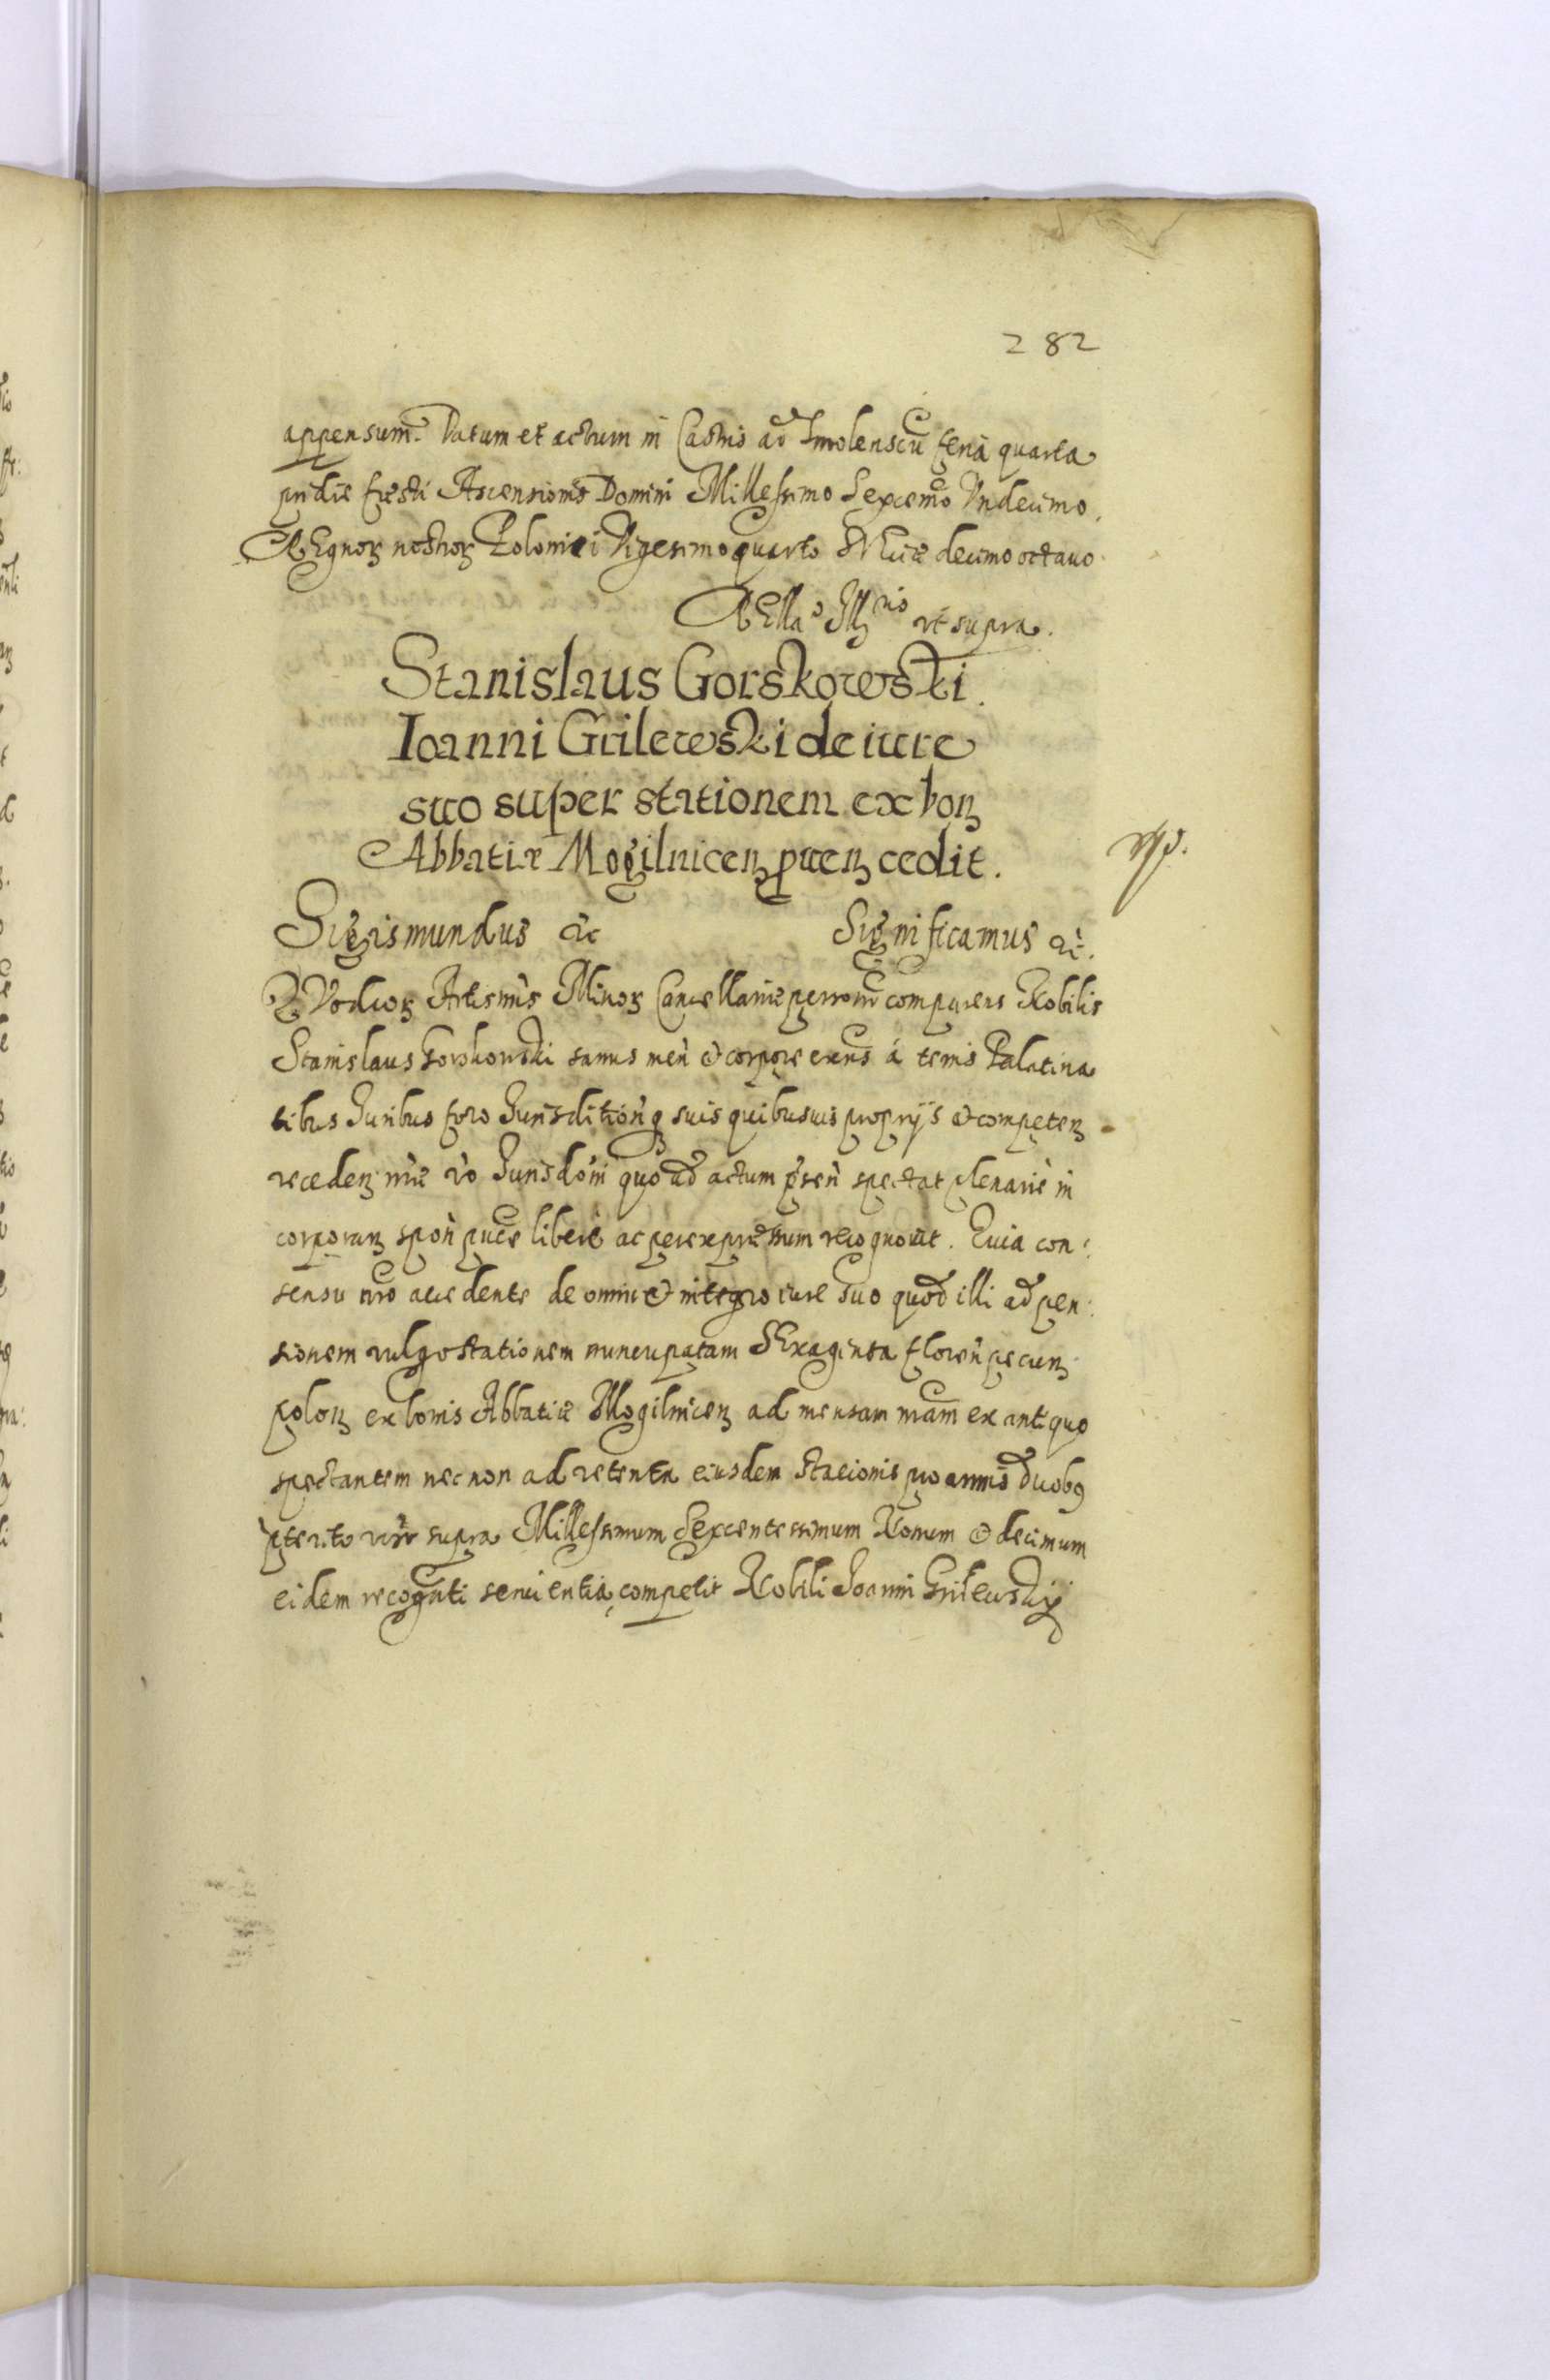 282
appensum. Datum et actum in Castris ad Smolenscū feria quarta
pridie festi Ascensionis Domini Millessimo Sexcemo Undecimo.
REgnoꝝ nostroꝝ Poloniei Vigesimoquarto SVEciæ decimo octavo.
RElla° Illmis vt supra.
Stanislaus Gorskowski.
Ioanni Grilewski de iure
suo super stationem ex bonꝫ
Abbatiæ Mogilnicenꝫ prouenꝫ cedit.
Sigismundus &c Significamus &c.
Q Vodcoꝝ Actis nris Minoꝝ Cancellariæ personr comparens Nobilis
Stanislaus Gorskowski sanus men̄ & corpore exens á terris Palatina
tibus Iuribus foro Iurisditiōnq suis quibusuis proprijs & competenꝫ
recedenꝫ nræ v̀o Iurisdōni quo ad actum p̀sen̄ spectat plenariè in
corporanꝫ spon̄ puce liberè ac per expressum recognouit. Quia con:
sensu nro accedente de omni & integro iure suo quod illi ad pen:
sionem vulgo stationem nuncupatam SExaginta floren̄ pecunꝫ
polonꝫ ex bonis Abbatiæ Mogilnicenꝫ ad mensam nram ex antiquo
spectantem nec non ad retenta eiusdem stacionis pro annis duobꝰ
p̀terito supra Millessimum Sexcentessimum Nonum & decimum
eidem recognti seruientia, competit Nobili Joanni Grilewskij